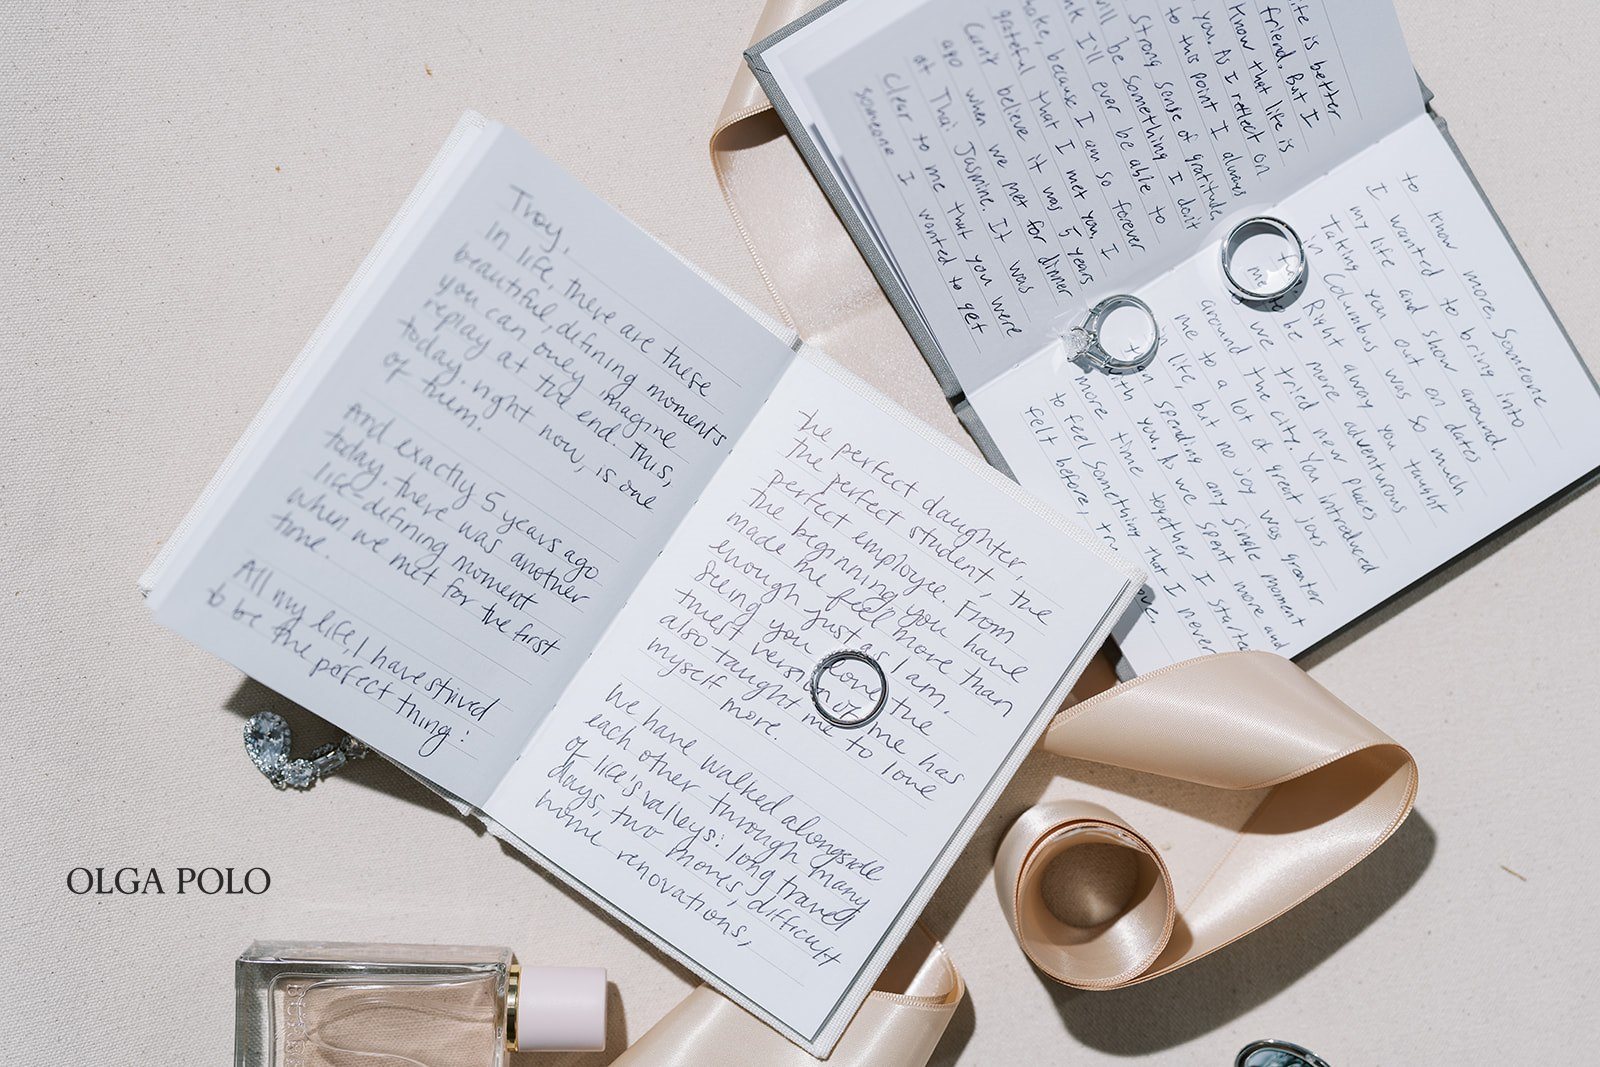 Troy,
in life, there are these
beautiful, defining moments
you can only imagine
replay at the end. This,
today. right now, is one
of them.
And exactly 5 years ago
today. there was another
life-defining moment
when we met for the first
time.
All my life, I have strived
to be the perfect thing:
the perfect daughter,
the perfect student, the
perfect employee. From
the beginning, you have
made me feel more than
enough just as I am.
Seeing you love the
truest version of me has
also taught me to love
myself more.
We have walked alongside
each other through many
of life's valleys: long travel
days, two moves, difficult
home renovations,
life is better
friend. But I
Know that life is
you. As I reflect on
to this point I always
Strong sense of gratitude
will be something I don't
I'll ever be able to
because I am so forever
grateful that I met you, I
Can't believe it was 5 years
ago when we met for dinner
at Thai Jasmine. It was
Clear to me that you were
someone I wanted to get
to know more. Someone
I wanted to bring into
my life and show around.
Taking you out on dates
in Columbus was so much
Right away you taught
me be more adventurous
we tried new places
around the city. You introduced
me to a lot of great joys
in life, but no joy was greater
spending any single moment
with you. As we spent more and
more time together I started
to feel something that I never
felt before,
OLGA POLO